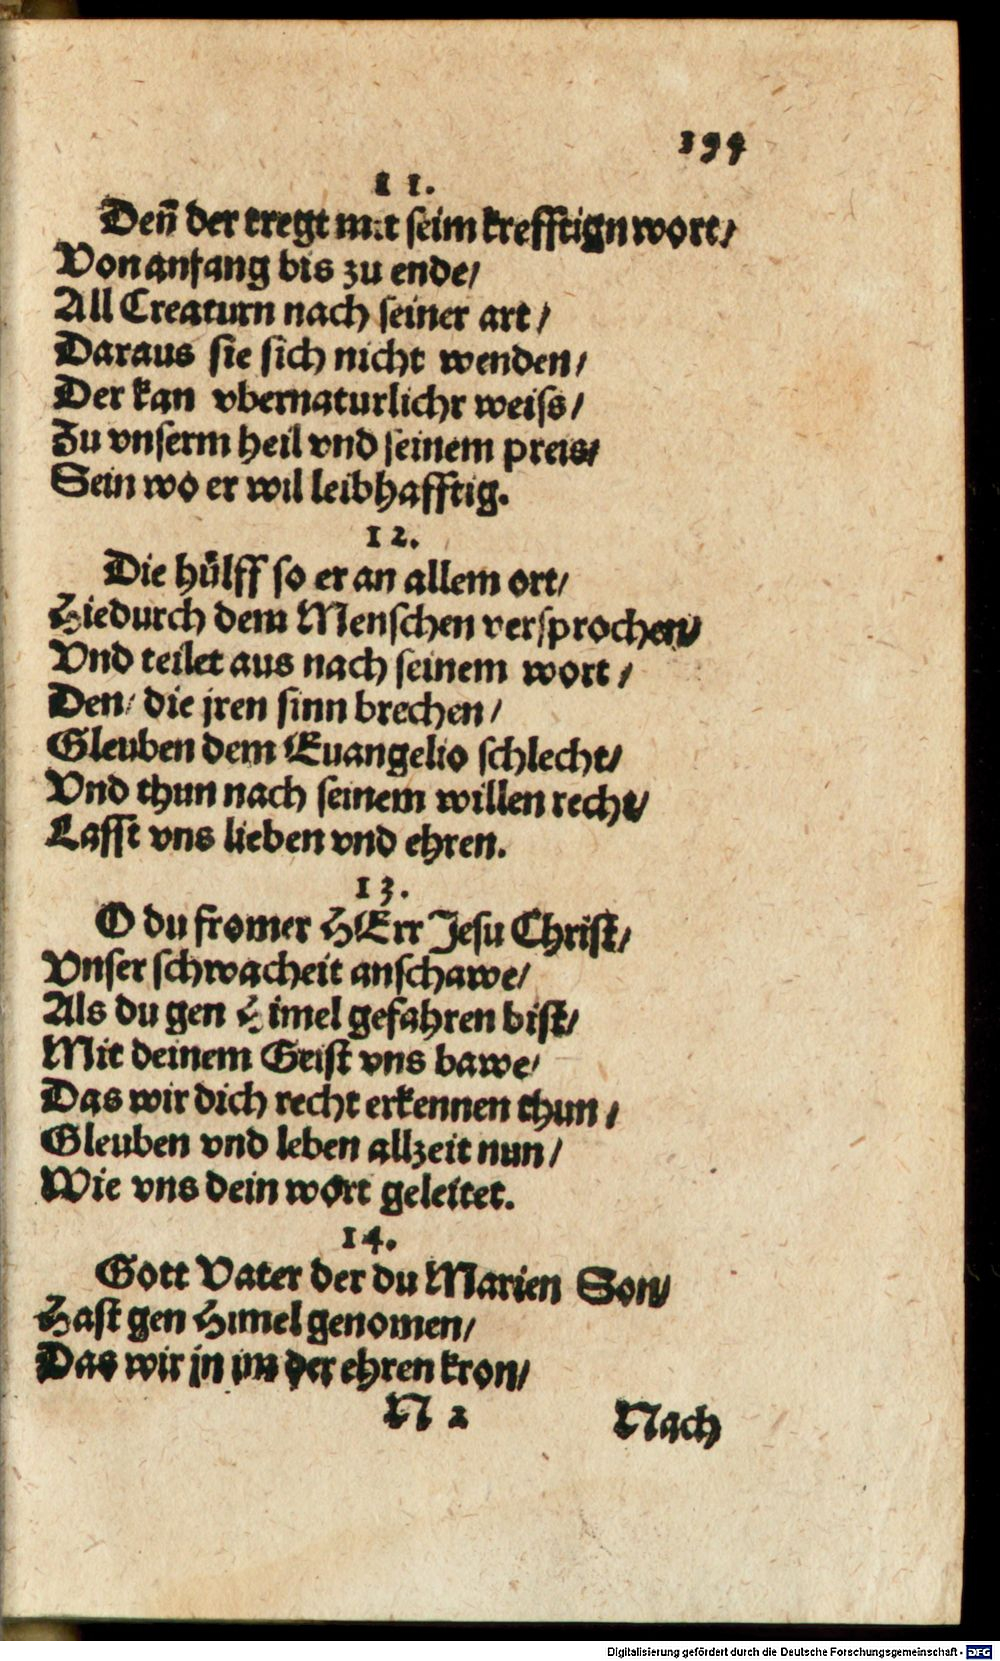 194
11.
Deñ der tregt mit seim krefftign wort/
Von anfang bis zu ende/
All Creaturn nach seiner art/
Daraus sie sich nicht wenden/
Der kan vbernaturlichr weiss/
Zu vnserm heil vnd seinem preis/
Sein wo er wil leibhafftig.
12.
Die hülff so er an allem ort/
Hiedurch dem Menschen versprochen/
Vnd teilet aus nach seinem wort/
Den/ die jren sinn brechen/
Gleuben dem Euangelio schlecht/
Vnd thun nach seinem willen recht/
Lasst vns lieben vnd ehren.
13.
O du fromer HErr Jesu Christ/
Vnser schwacheit anschawe/
Als du gen Himel gefahren bist/
Mit deinem Geist vns bawe/
Das wir dich recht erkennen thun/
Gleuben vnd leben allzeit nun/
Wie vns dein wort geleitet.
14.
Gott Vater der du Marien Son/
Hast gen Himel genomen/
Das wir jn im der ehren kron/
N 2 Nach
Digitalisierung gefördert durch die Deutsche Forschungsgemeinschaft - DFG